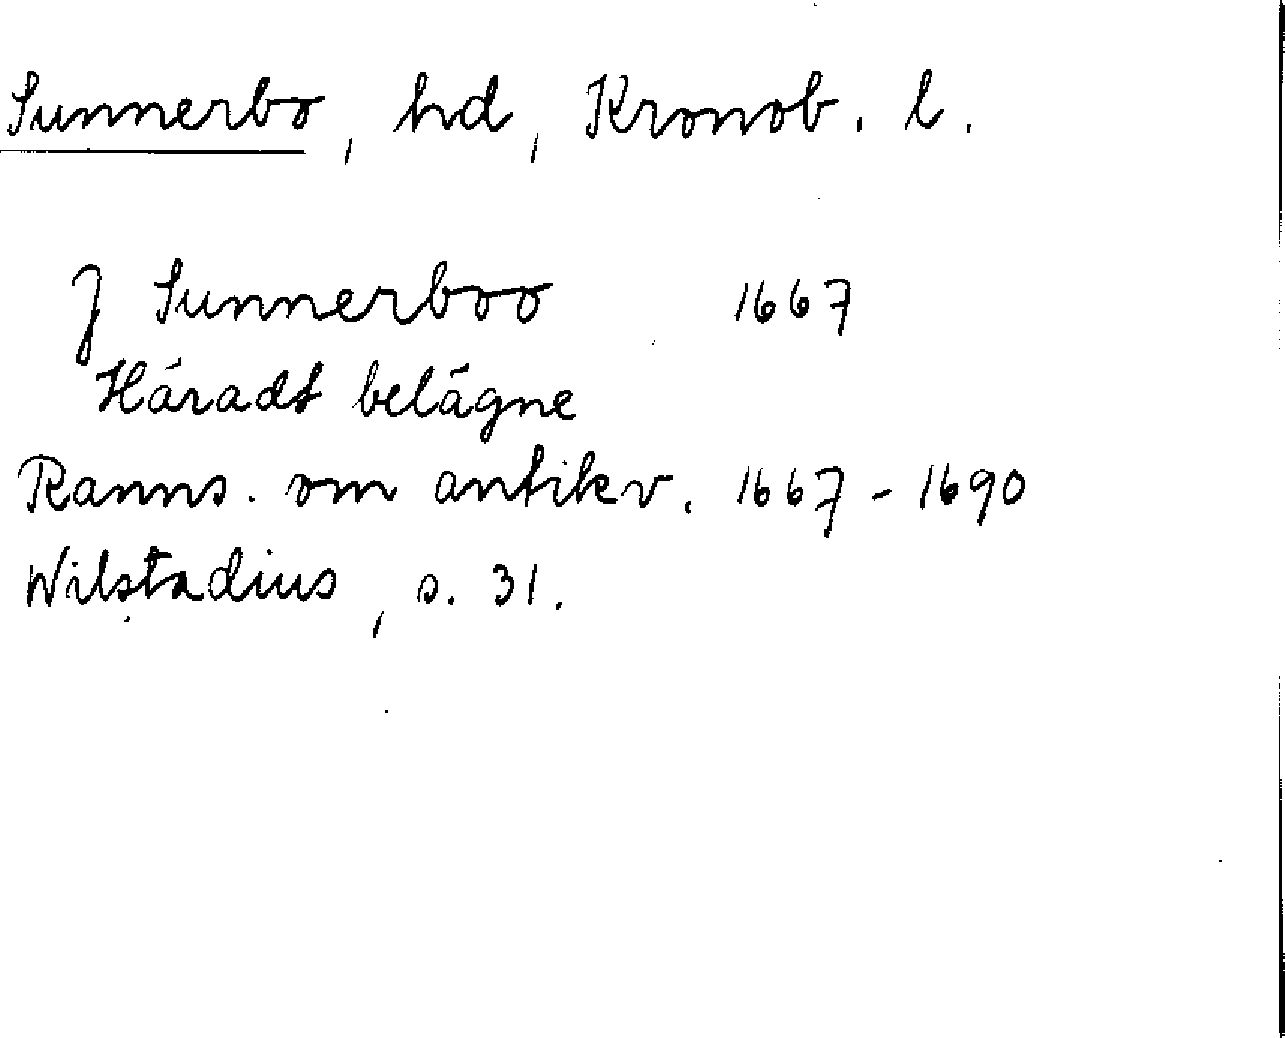 Sunnerbo, hd, Kronob. l.
J Sunnerboo 1667
Häradt belägne
Ranns. om antikv. 1667 - 1690
Wilstadius, s. 31.